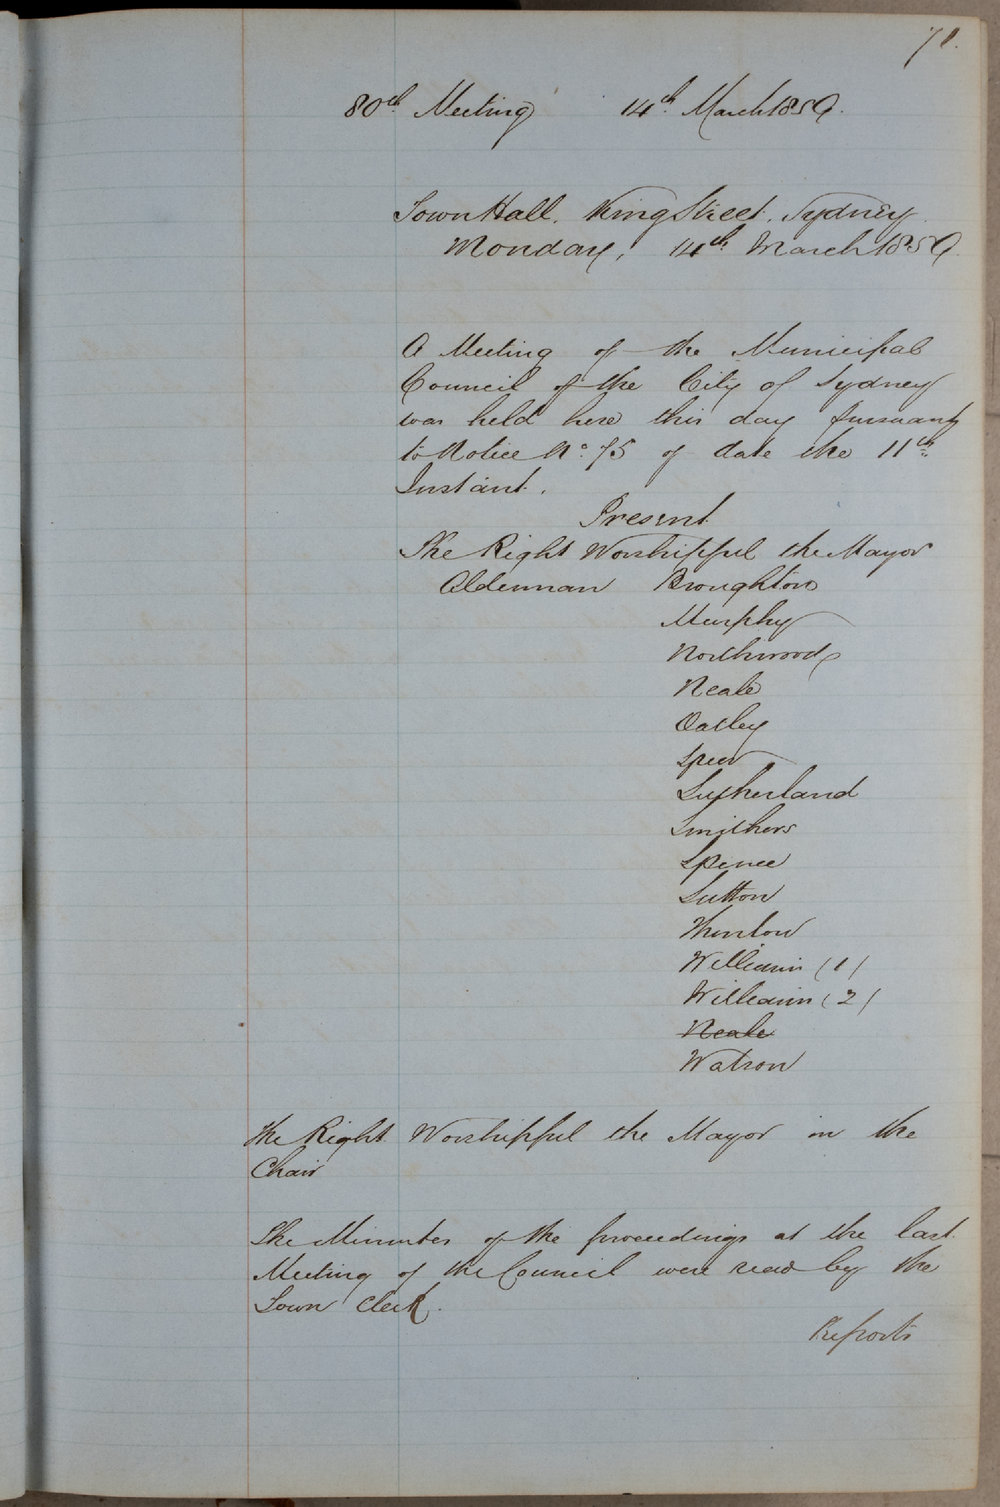 71.
80th Meeting 14th March 1859.
Town Hall. King Street. Sydney.
Monday, 14th March 1859.
A Meeting of the Municipal
Council of the City of Sydney
was held here this day pursuant
to Notice No. 75 of date the 11th
Instant.
Present
The Right Worshipful the Mayor
Alderman Broughton
Murphy
Northwood
Neale
Oatley
Speer
Sutherland
Smithers
Spence
Sutton
Thurlow
Williams (1)
Williams (2)
Neale
Watson
The Right Worshipful the Mayor in the
Chair
The Minutes of the proceedings at the last
Meeting of the Council were read by the
Town Clerk.
Reports